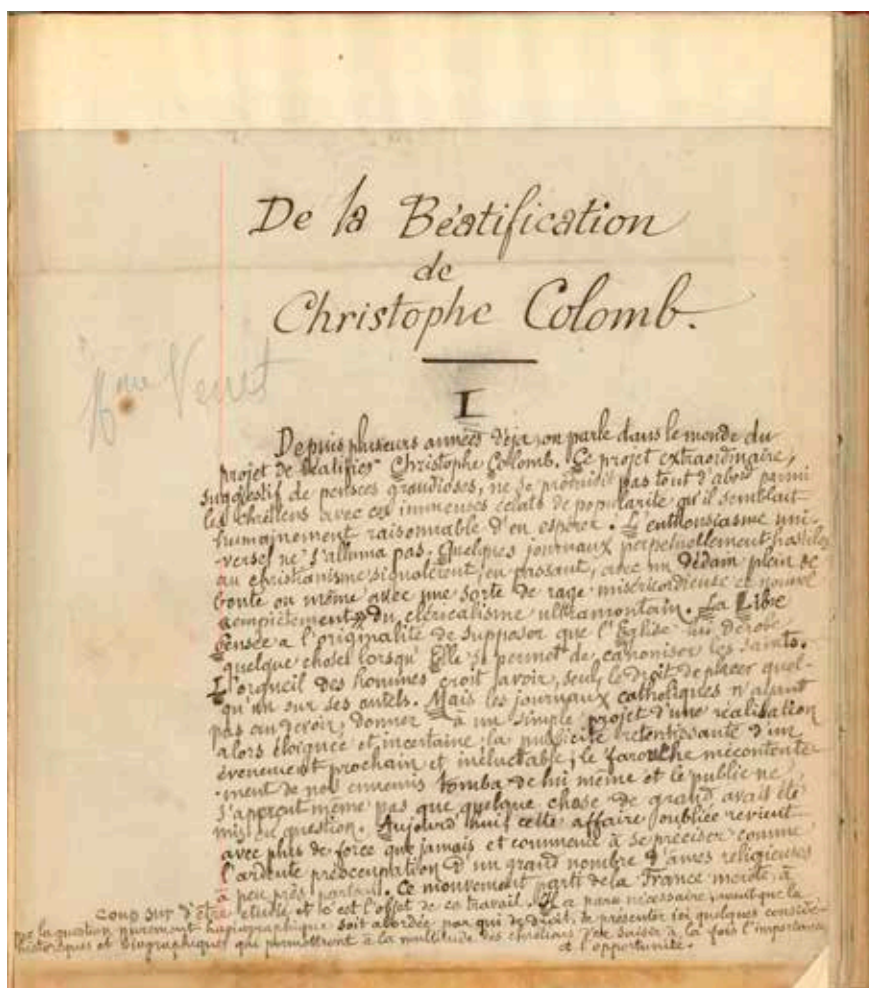 De la Béatification
de
Christophe Colomb.
Mme Verret
I
Depuis plusieurs années déjà, on parle dans le monde du
projet de béatifier Christophe Colomb. Ce projet extraordinaire,
suggestif de pensées grandioses, ne se produisit pas tout d'abord parmi
les chrétiens avec ces immenses éclats de popularité qu'il semblait
humainement raisonnable d'en espérer. L'enthousiasme uni-
-versel ne s'alluma pas. Quelques journaux perpétuellement hostiles
au christianisme signalèrent, en passant, avec un dédain plein de
bonté ou même avec une sorte de rage miséricordieuse ce nouvel
empiètement du cléricalisme ultramontain. La Libre
Pensée a l'originalité de supposer que l'Eglise lui dérobe
quelque chose lorsqu'Elle se permet de canoniser les saints.
L'orgueil des hommes croit avoir, seul, le droit de placer quel-
qu'un sur ses autels. Mais les journaux catholiques n'ayant
pas cru devoir donner à un simple projet d'une réalisation
alors éloignée et incertaine la publicité retentissante d'un
évènement prochain et inéluctable, le farouche mécontente
-ment de nos ennemis tomba de lui même et le public ne
s'aperçut même pas que quelque chose de grand avait été
mis en question. Aujourd'hui cette affaire oubliée revient
avec plus de force que jamais et commence à se préciser comme
l'ardente préoccupation d'un grand nombre d'âmes religieuses
à peu près partout. Ce mouvement parti de la France mérite à
coup sûr d'être étudié et c'est l'objet de ce travail. Il a paru nécessaire, avant que la
question purement hagiographique soit abordée par qui de droit, de présenter ici quelques considé-
historiques et biographiques qui permettront à la multitude des chrétiens d'en saisir à la fois l'importance
et l'opportunité.